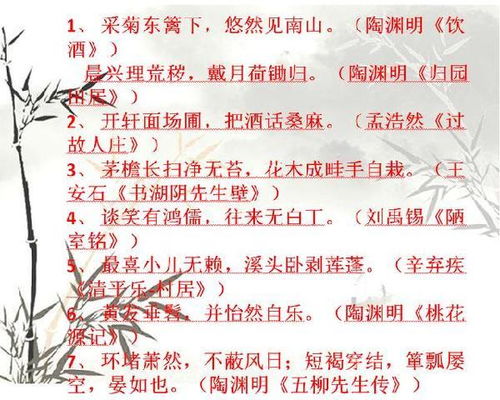 1、 采菊东篱下，悠然见南山。（陶渊明《饮
酒》）
晨兴理荒秽，戴月荷锄归。（陶渊明《归园
田居》）
2、 开轩面场圃，把酒话桑麻。（孟浩然《过
故人庄》）
3、 茅檐长扫净无苔，花木成畦手自栽。（王
安石《书湖阴先生壁》）
4、 谈笑有鸿儒，往来无白丁。（刘禹锡《陋
室铭》）
5、 最喜小儿无赖，溪头卧剥莲蓬。（辛弃疾
《清平乐-村居》）
6、 黄发垂髫，并怡然自乐。（陶渊明《桃花
源记》）
7、 环堵萧然，不蔽风日；短褐穿结，箪瓢屡
空，晏如也。（陶渊明《五柳先生传》）